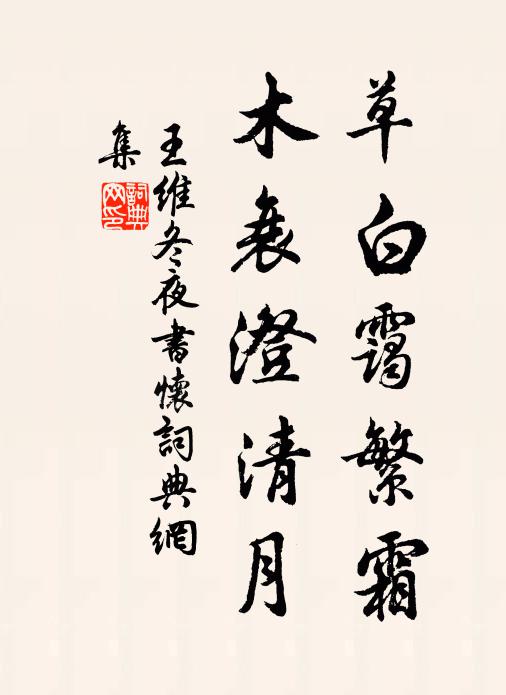 草白靄繁霜
木衰澄清月
王維冬夜書懷詞典網
集
詞典
网印